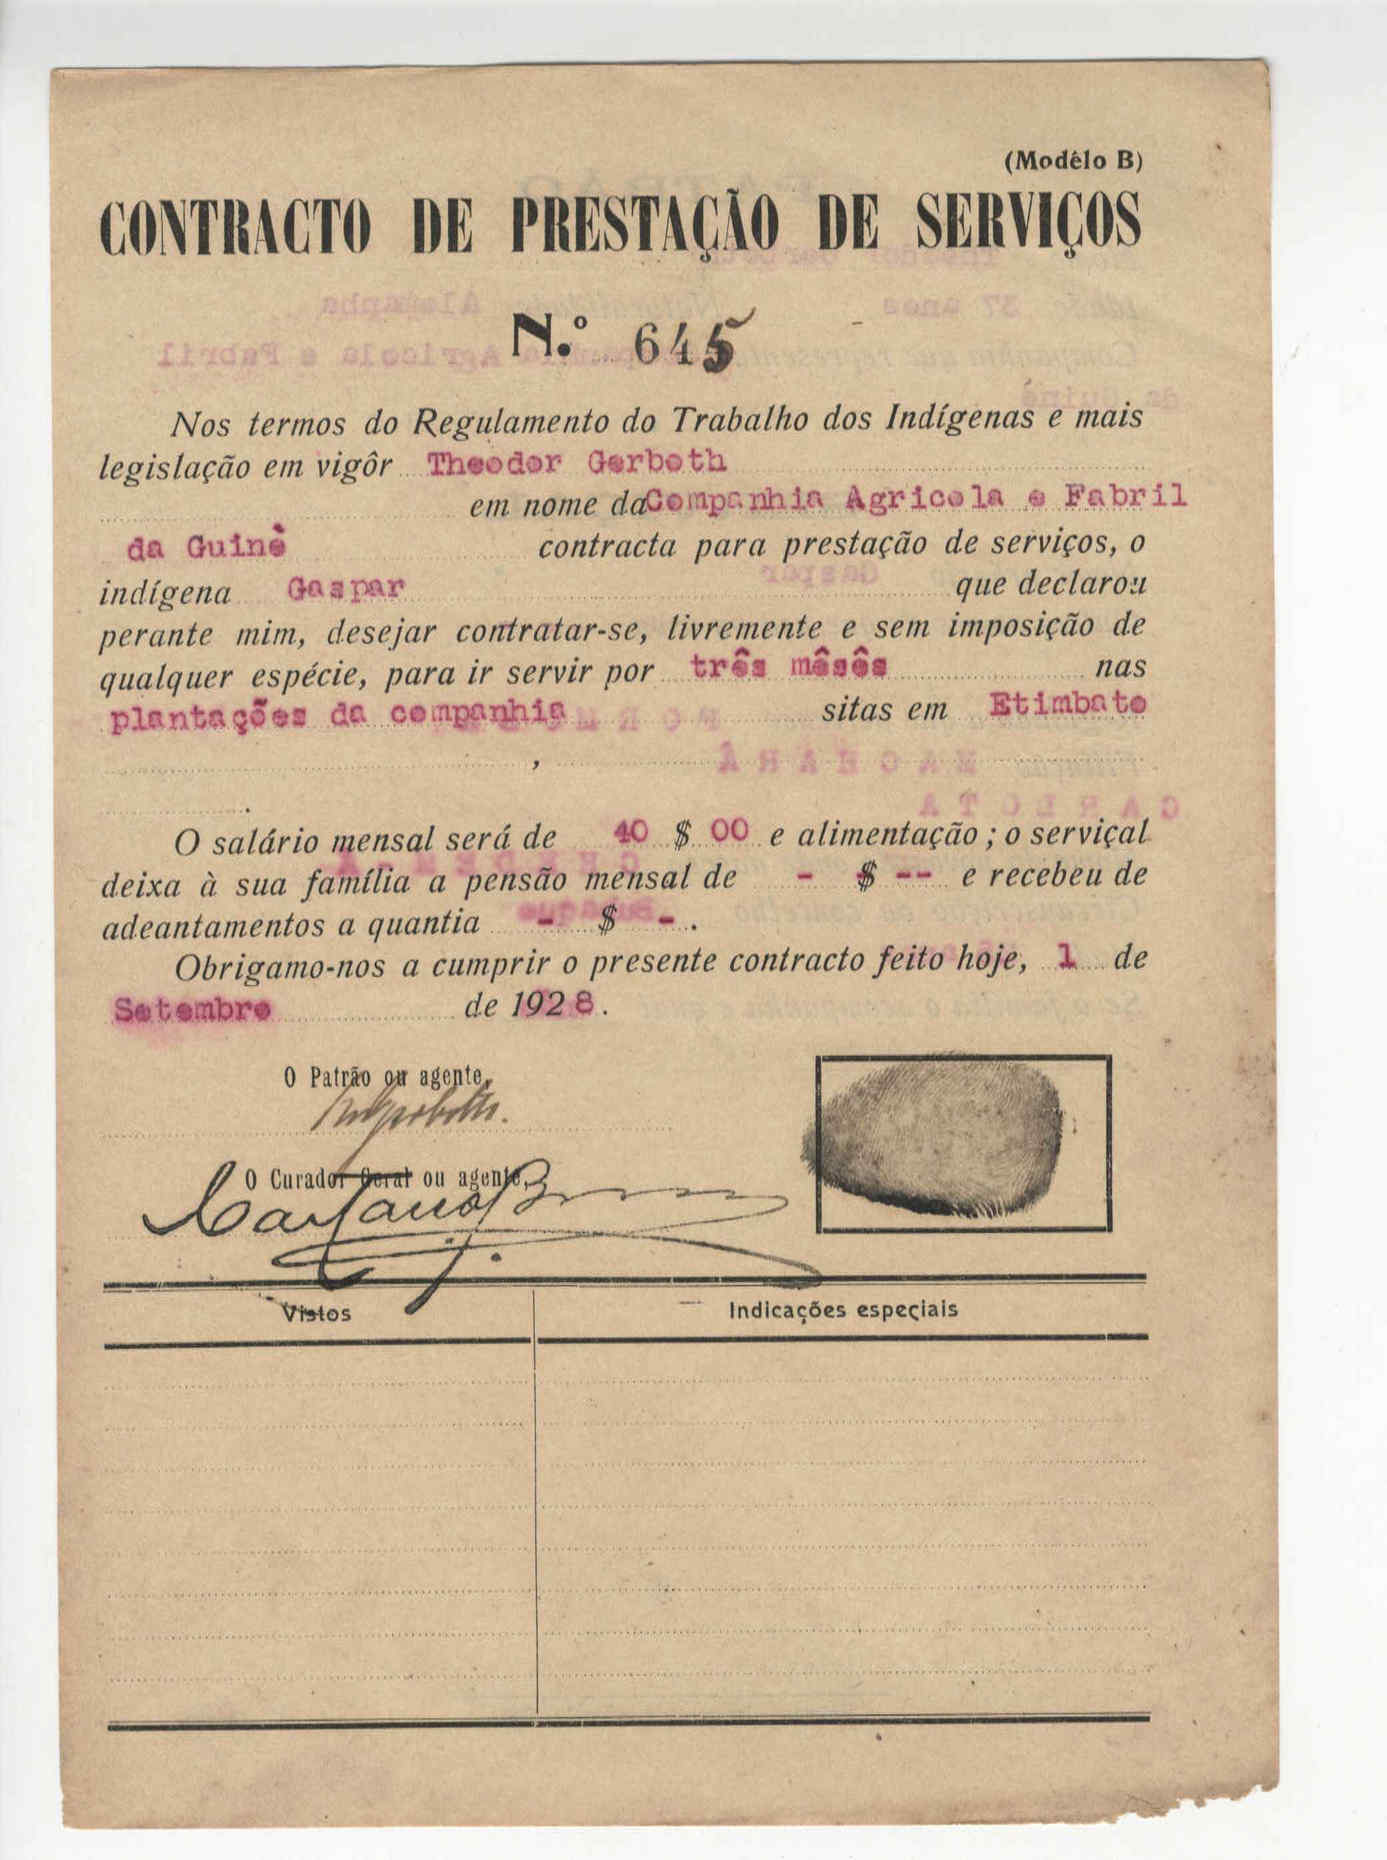 (Modêlo B)
CONTRACTO DE PRESTAÇÃO DE SERVIÇOS
N.º 645
Nos termos do Regulamento do Trabalho dos Indígenas e mais
legislação em vigôr Theodor Gerboth
em nome da Companhia Agricola e Fabril
da Guinè contracta para prestação de serviços, o
indígena Gaspar que declarou
perante mim, desejar contratar-se, livremente e sem imposição de
qualquer espécie, para ir servir por três mêsês nas
plantações da companhia sitas em Etimbato
,
.
O salário mensal será de 40 $ 00 e alimentação; o serviçal
deixa à sua família a pensão mensal de - $ -- e recebeu de
adeantamentos a quantia - $ - .
Obrigamo-nos a cumprir o presente contracto feito hoje, 1 de
Setembro de 1928.
O Patrão ou agente,
O Curador Geral ou agente,
Vistos
Indicações especiais